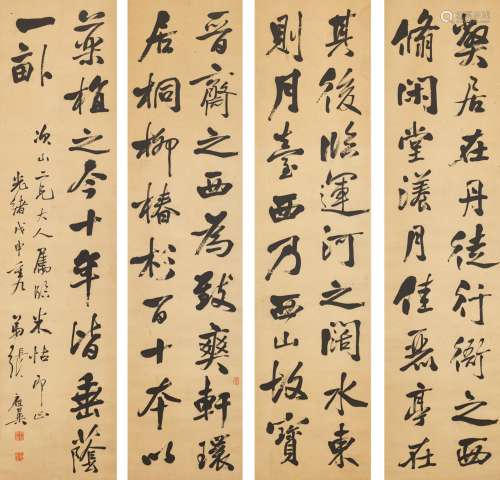 弊居在丹徒行衙之西
翛閑堂漾月佳麗亭在
其後臨運河之闊水東
則月臺西乃西山故寶
晉齋之西為致爽軒環
居桐柳椿杉百十本以
藥植之今十年皆垂蔭
一畝
次山二兄大人屬臨米帖即正
光緒戊申重九
弟張